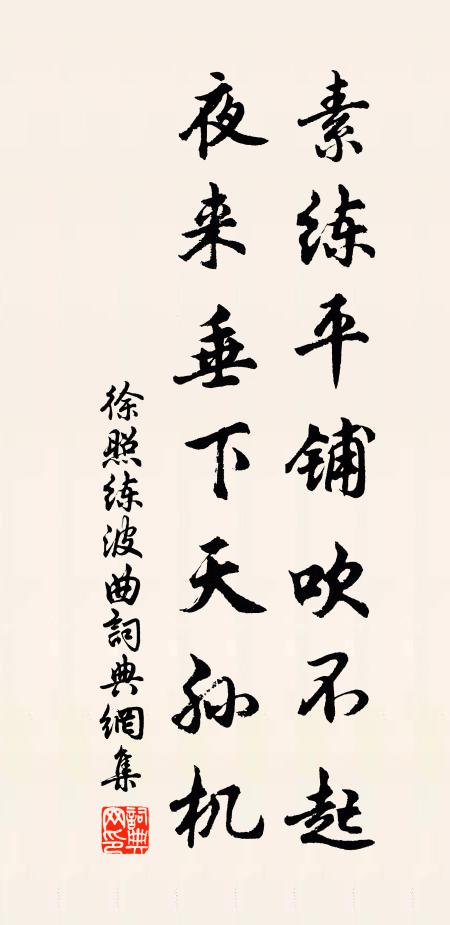 素练平铺吹不起
夜来垂下天孙机
徐照练波曲詞典網集
詞典网印